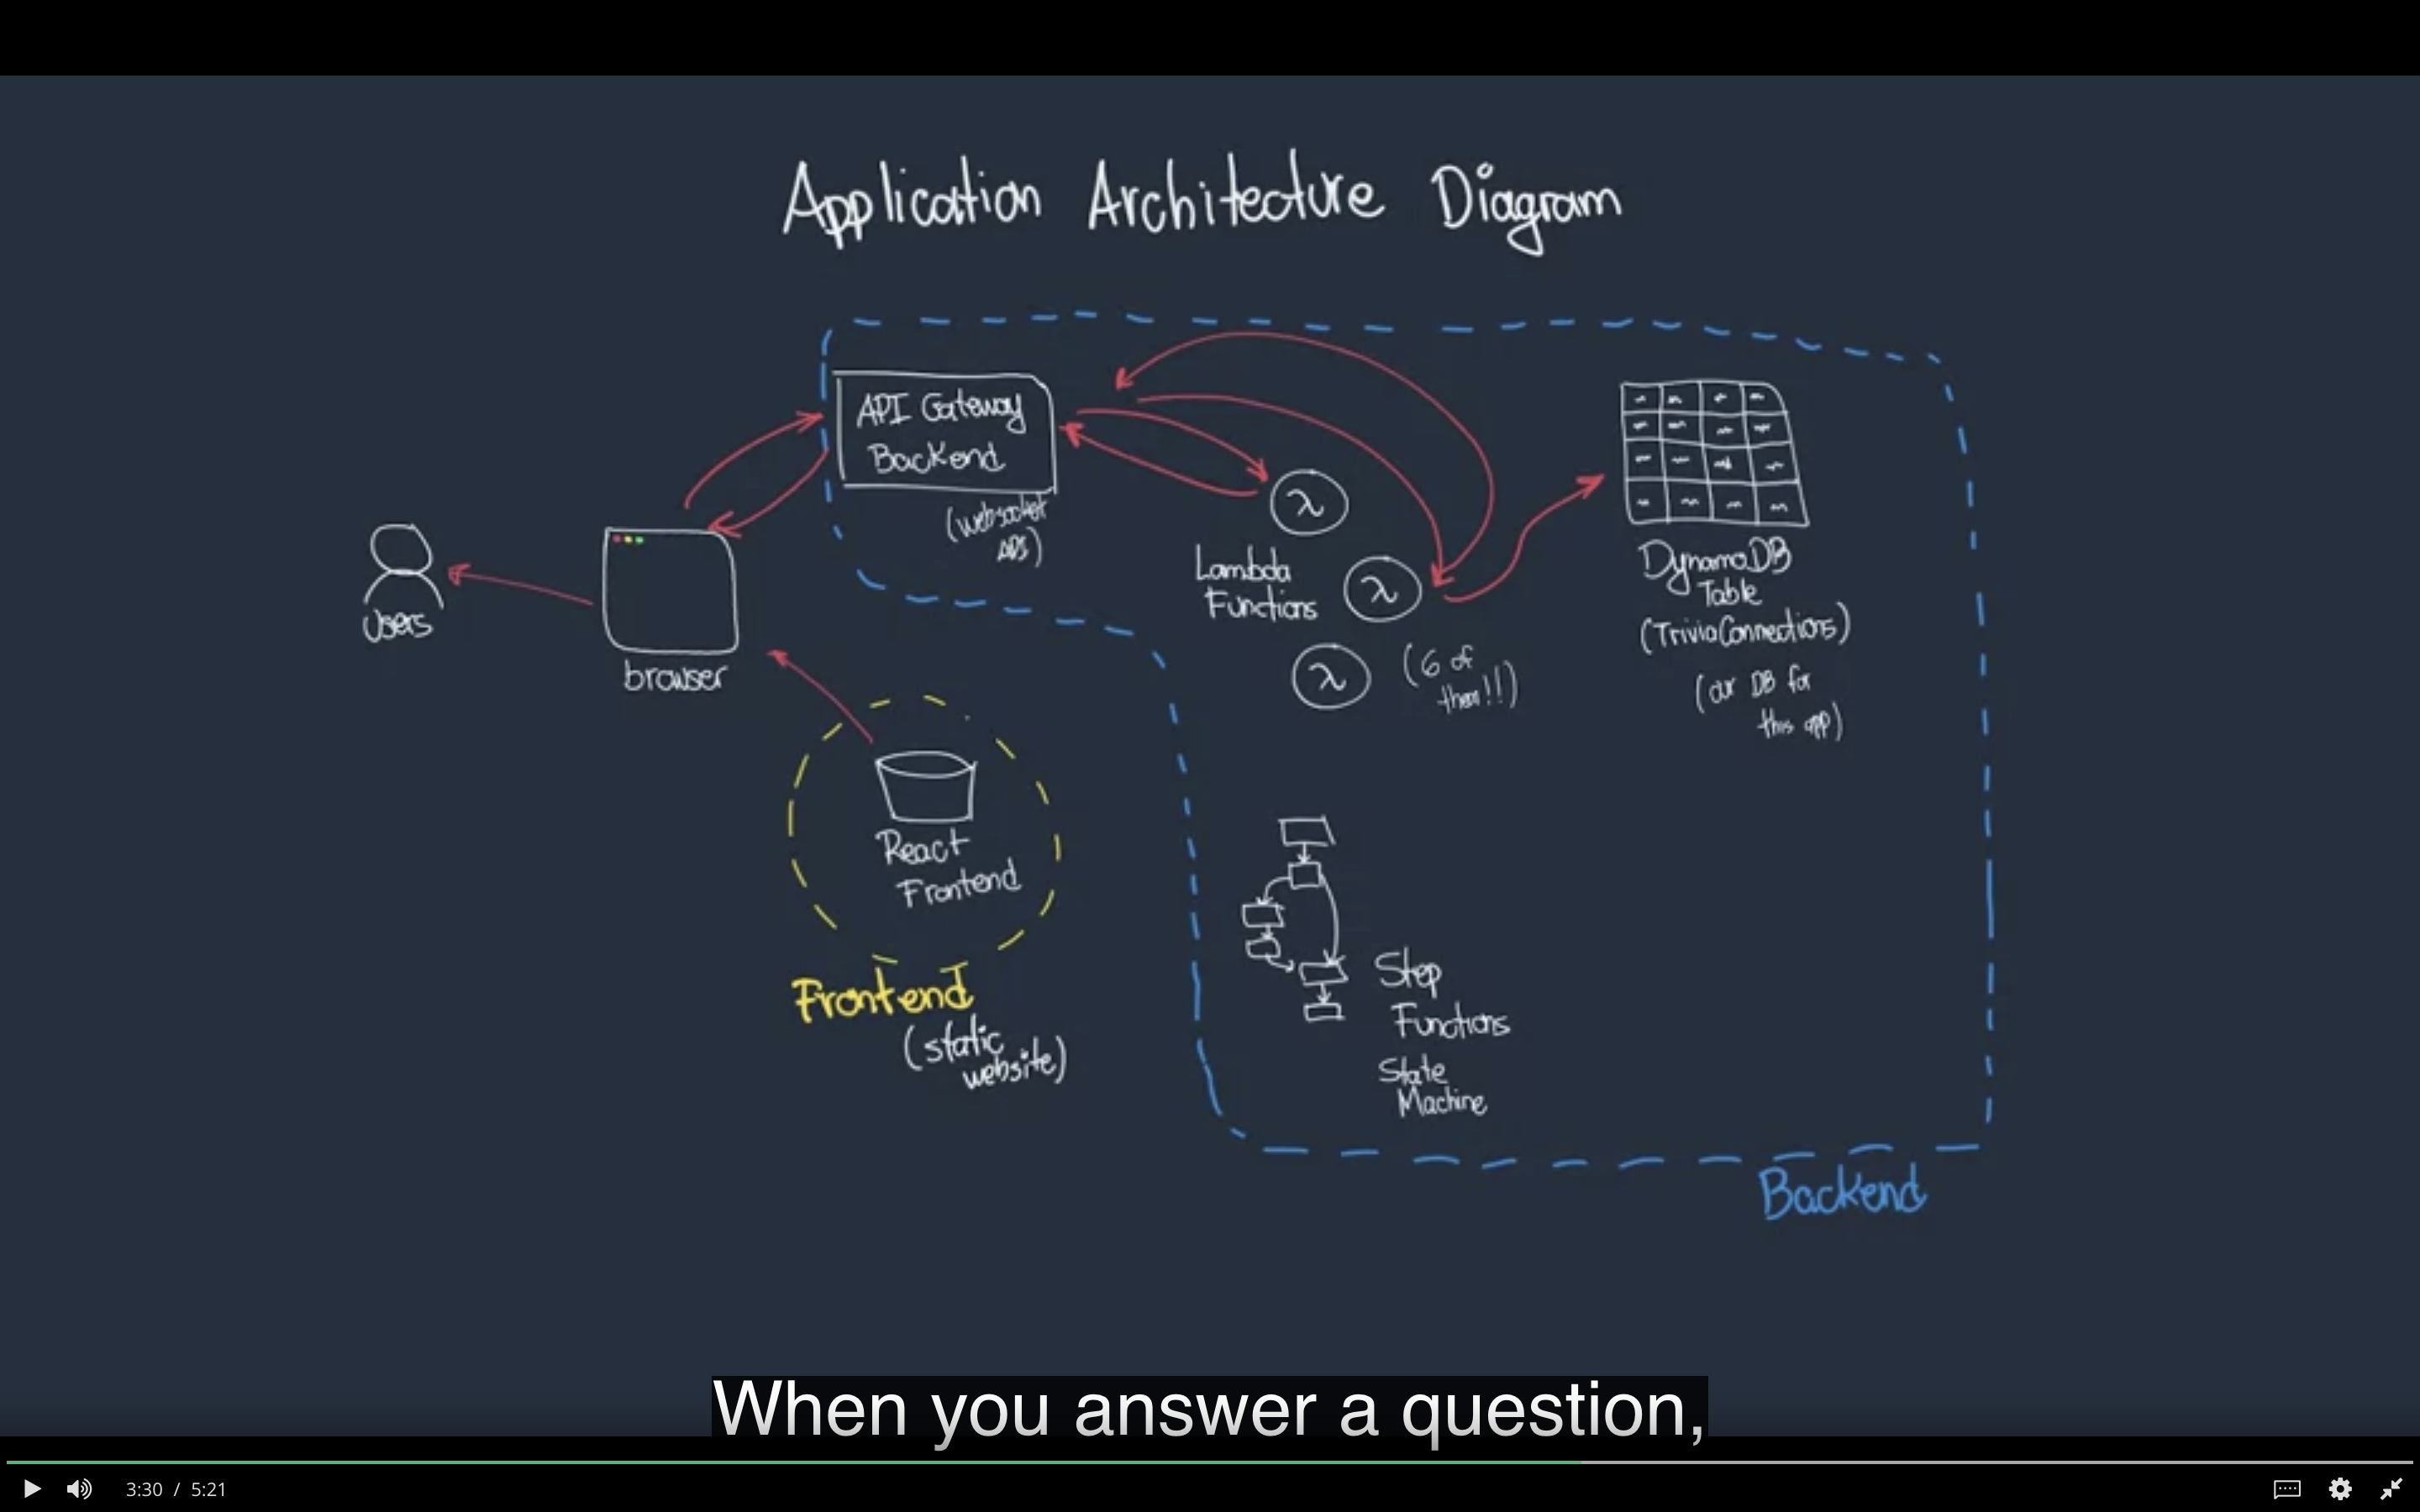 Application Architecture Diagram
API Gateway
Backend
(websocket
APIs)
λ
Lambda
Functions
λ
λ
(6 of
them!!)
DynamoDB
Table
(TriviaConnections)
(our DB for
this app)
Users
browser
React
Frontend
Frontend
(static
website)
Step
Functions
State
Machine
Backend
When you answer a question,
3:30 / 5:21